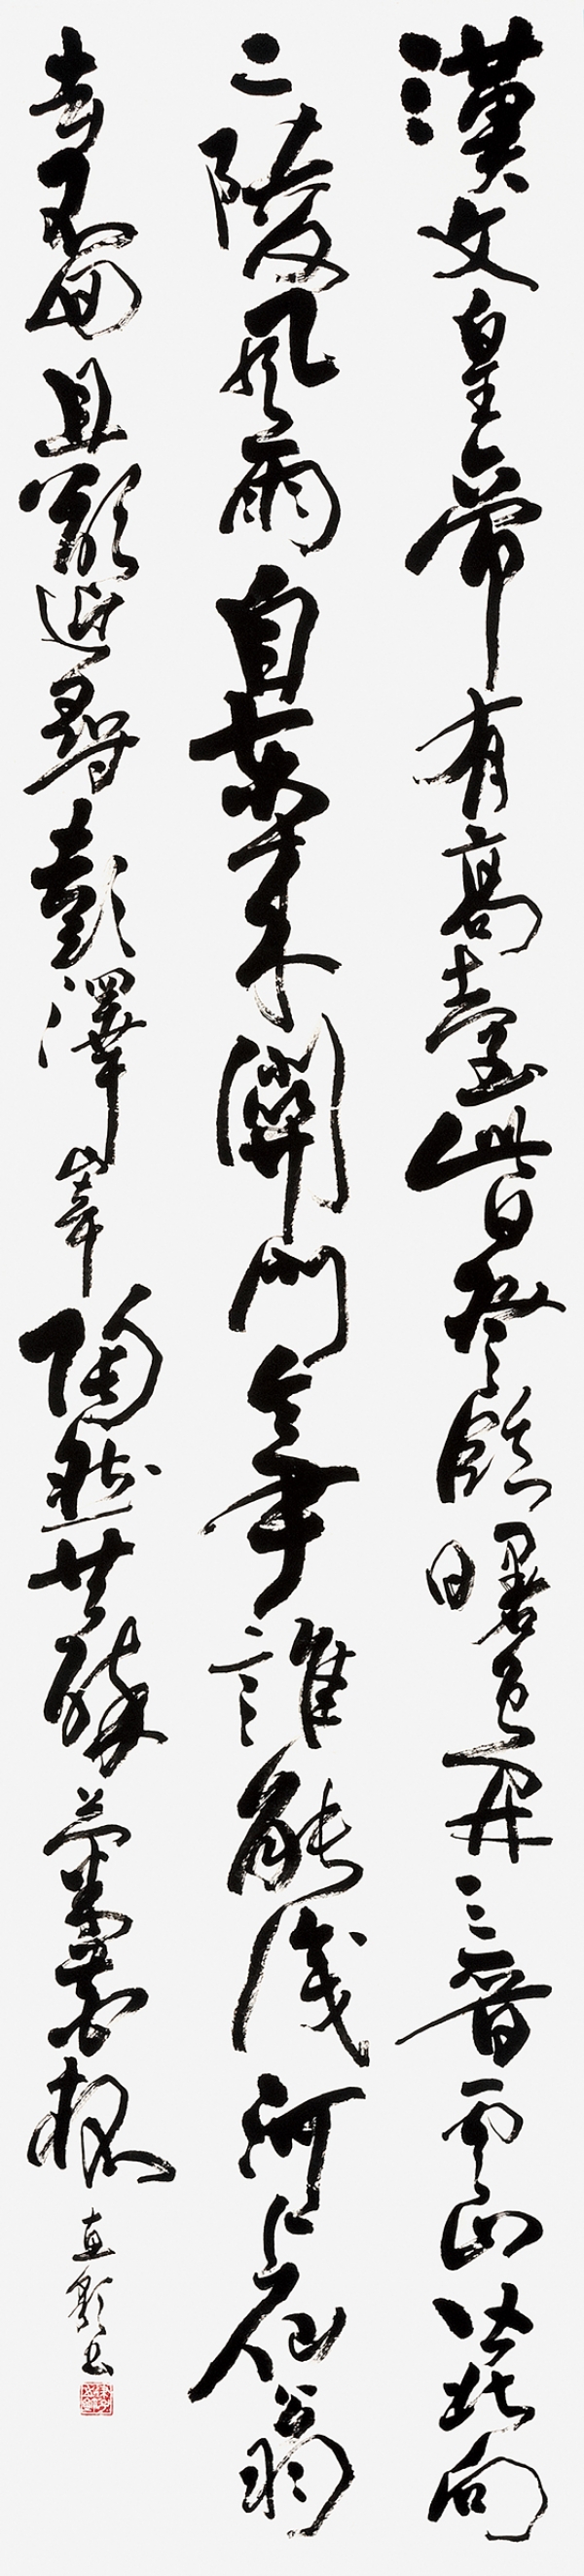 漢文皇帝有高臺此日登臨曙色開三晉雲山皆北向
二陵風雨自東來關門令尹誰能識河上仙翁
去不回且欲近尋彭澤宰陶然共醉菊花杯 直 書